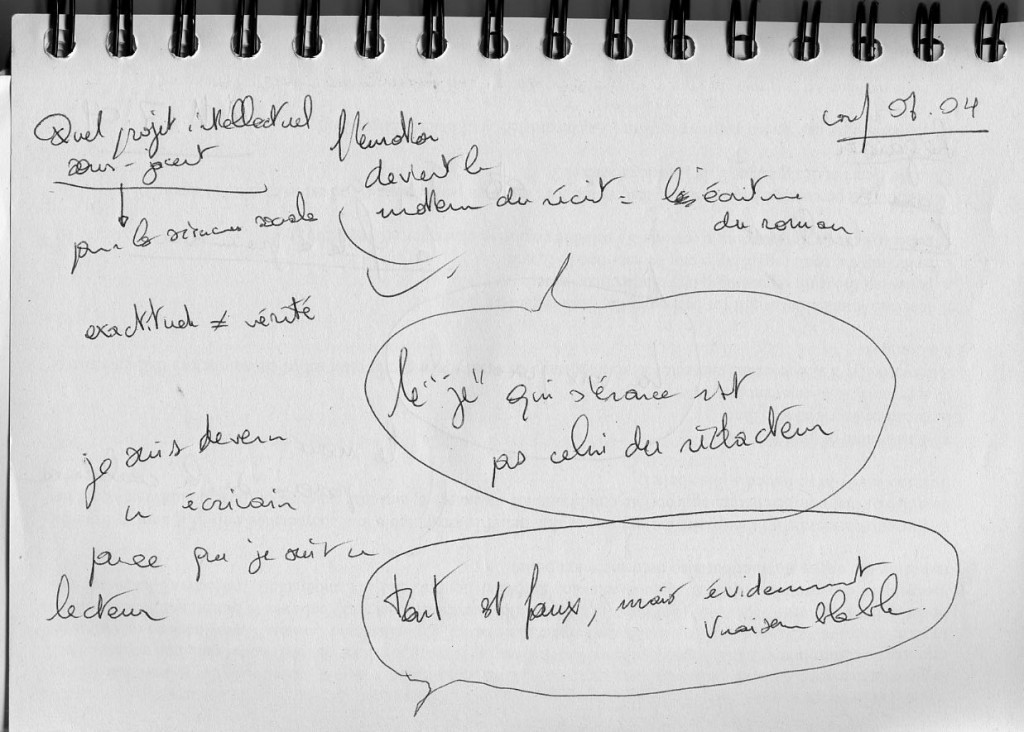 conf 08.04
Quel projet intellectuel
sous-jacent
pour les sciences sociales
l'émotion
devient le
moteur du récit = les écriture
du roman
exactitude ≠ vérité
le "je" qui s'énonce est
pas celui du rédacteur
je suis devenu
un écrivain
parce que je suit un
lecteur
tout est faux, mais évidemment
vraisemblable.